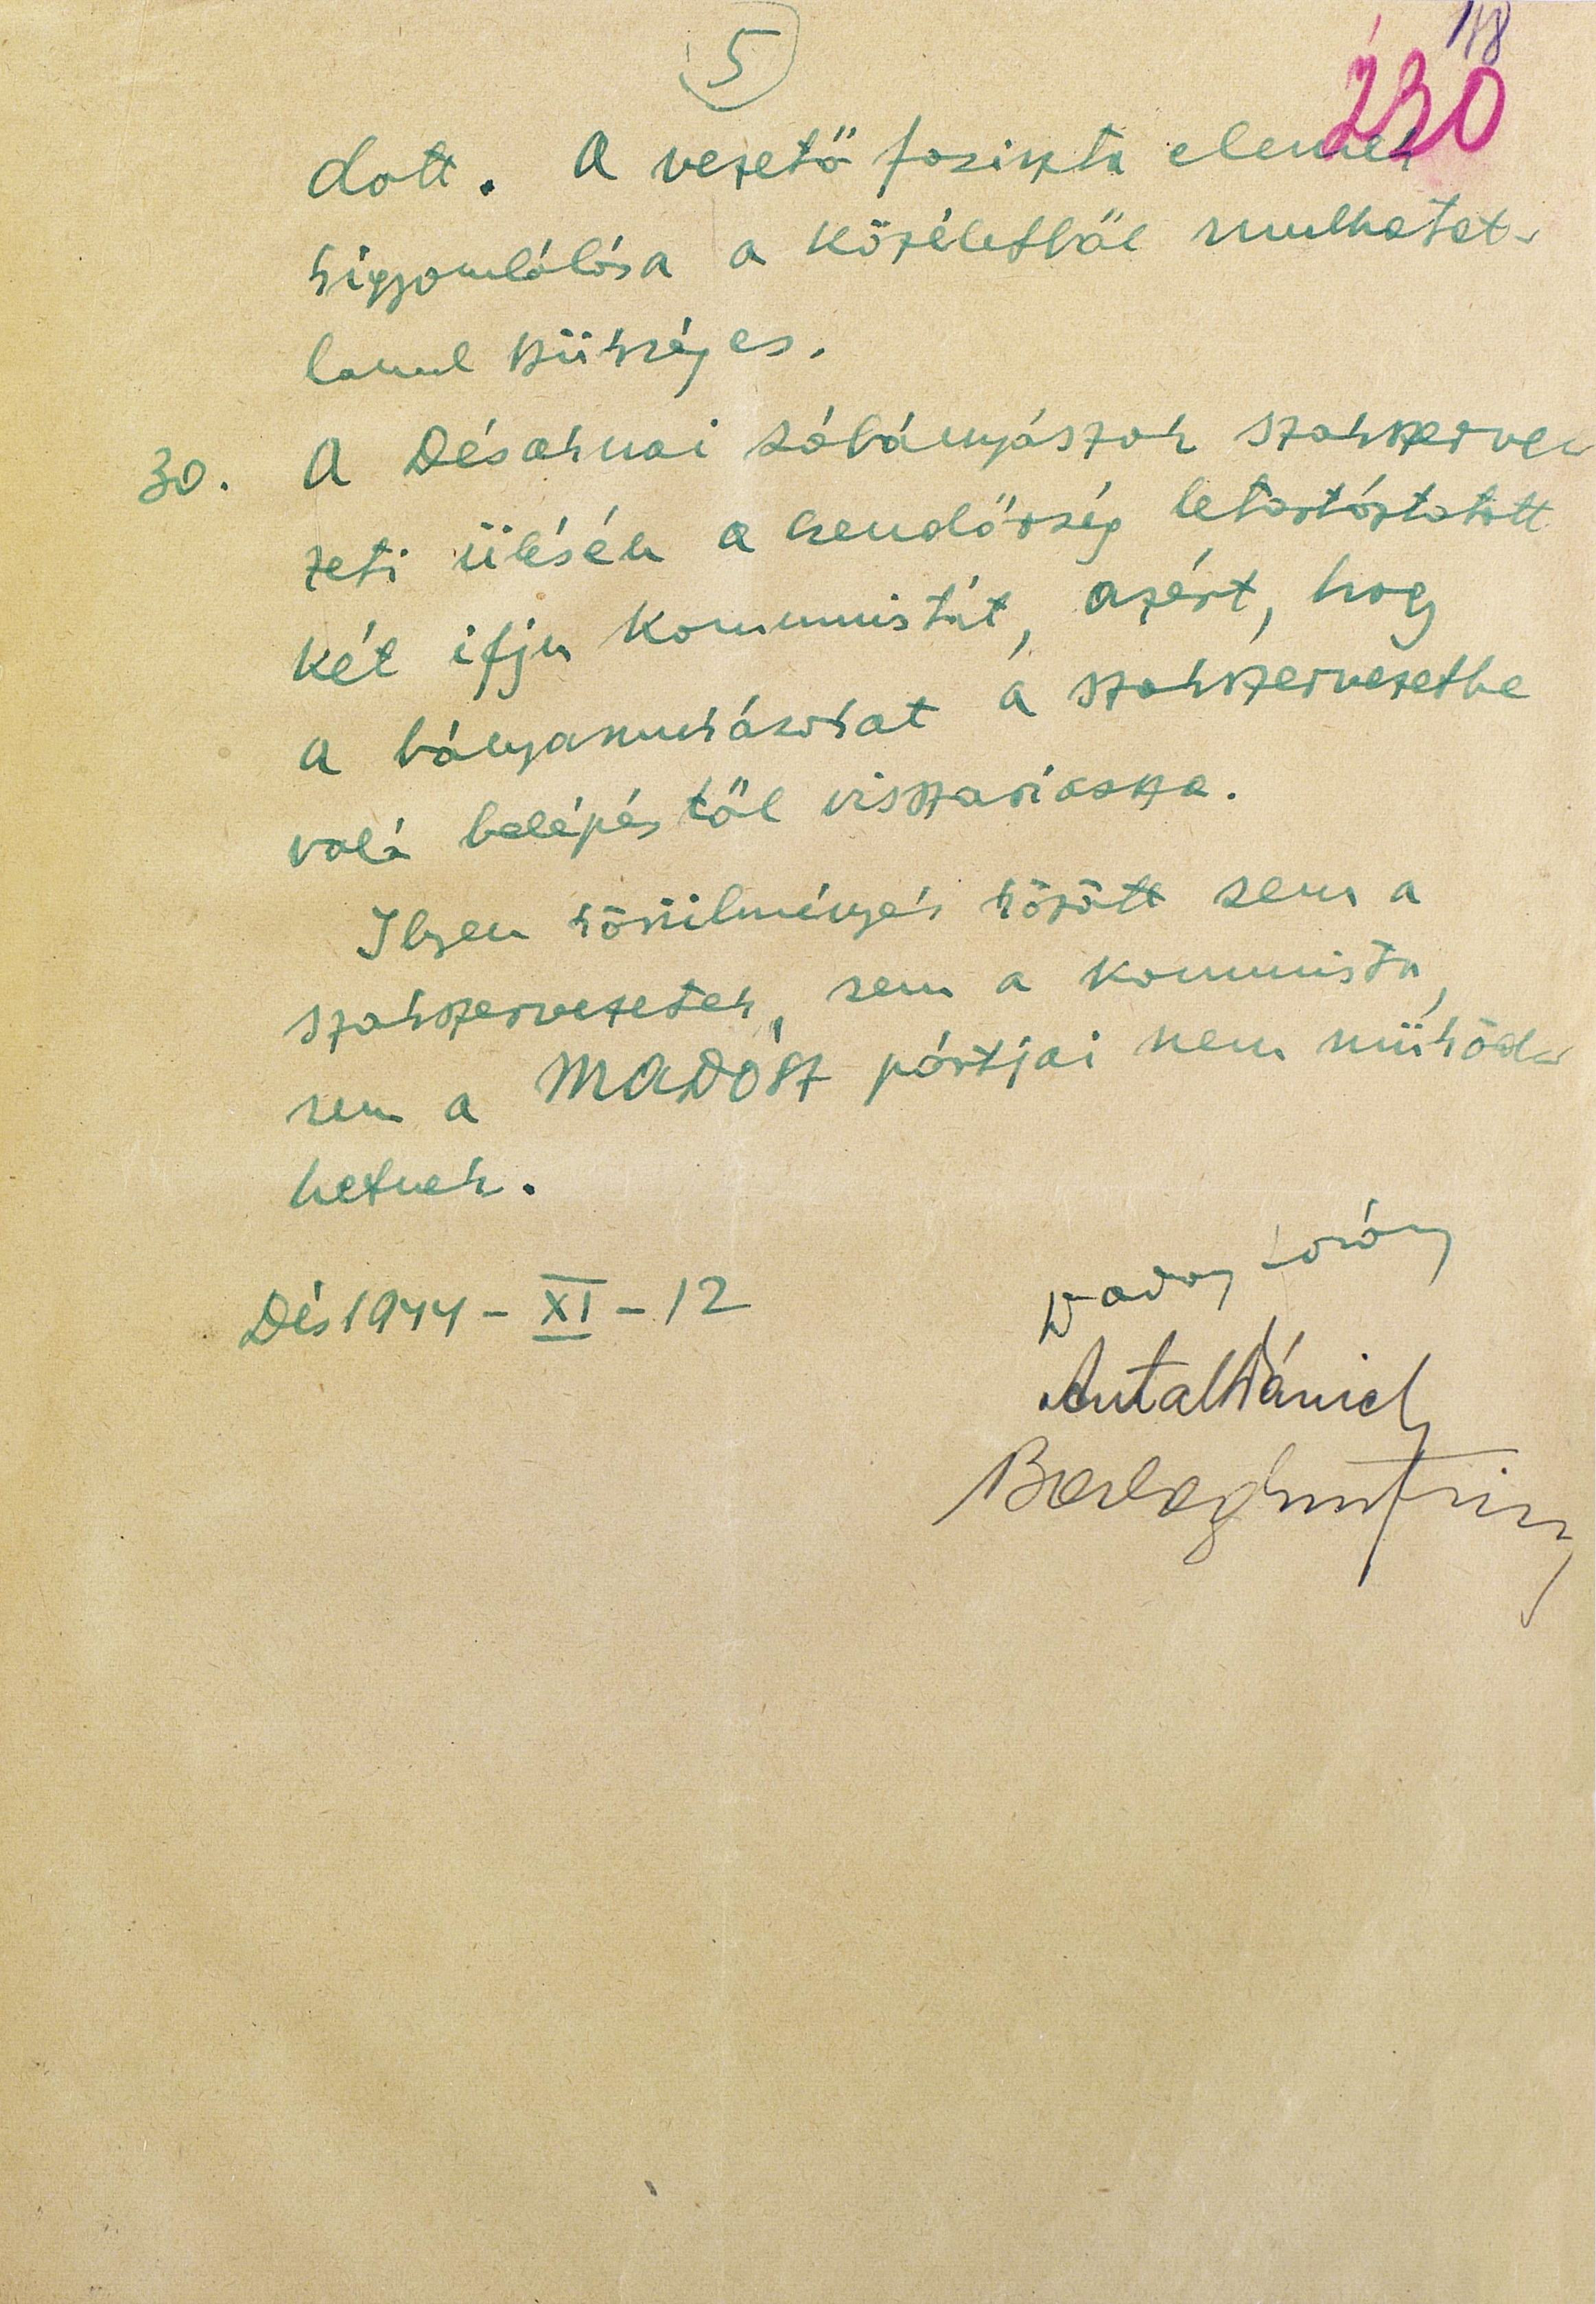 5
118
230
dott. A vezető fasiszta elemek
kigyomlálása a közéletből mulhatat-
lanul szükséges.
30. A Désaknai sóbányászok szakszerve-
zeti ülésén a rendőrség letartóztatott
két ifju kommunistát, azért, hogy
a bányamunkásokat a szakszervezetbe
való belépéstől visszariassza.
Ilyen körülmények között sem a
szakszervezetek, sem a kommunista,
sem a MADOSZ pártjai nem működ-
hetnek.
Dés 1944 - XI - 12
Lóránt
Antal Dániel